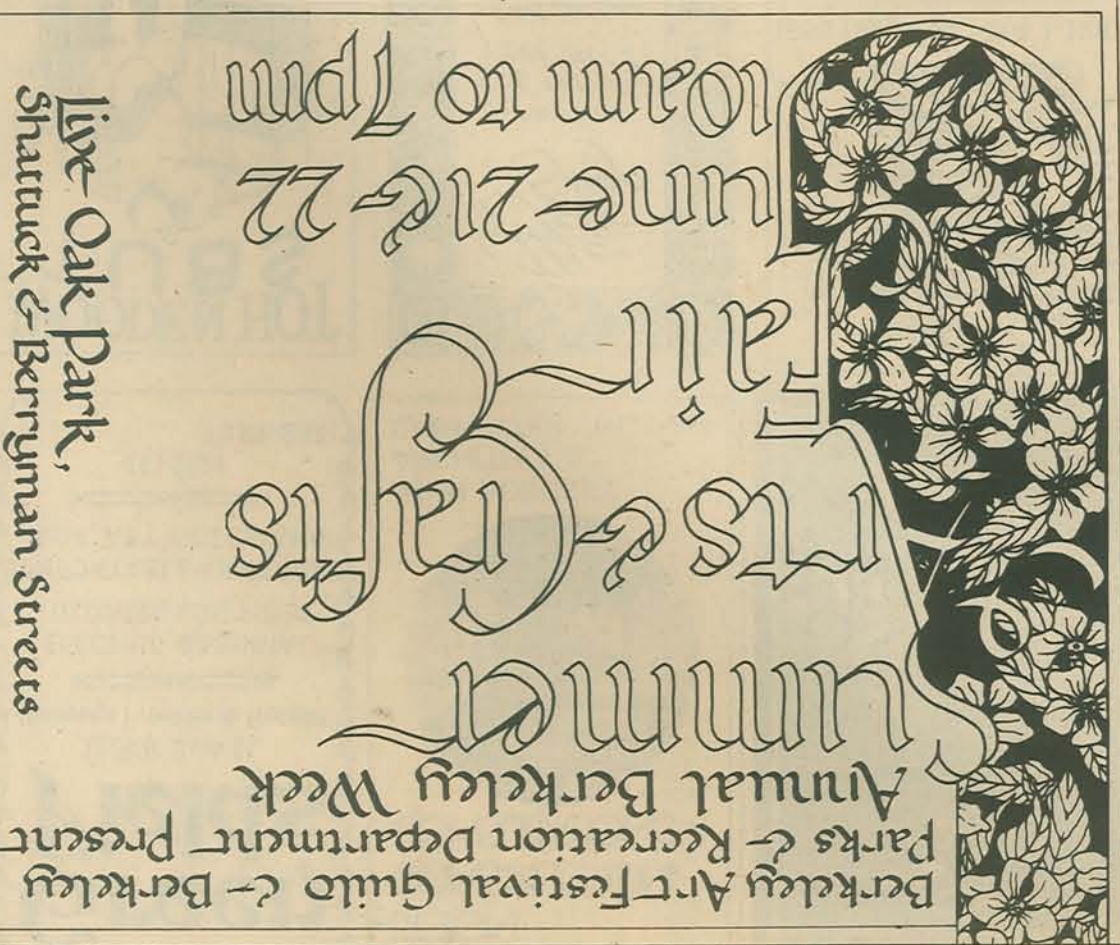 Berkeley Art Festival Guild & Berkeley
Parks & Recreation Department Present
Annual Berkeley Week
Summer
Arts & Crafts
Fair
June 21 & 22
10am to 7pm
Live Oak Park,
Shattuck & Berryman Streets